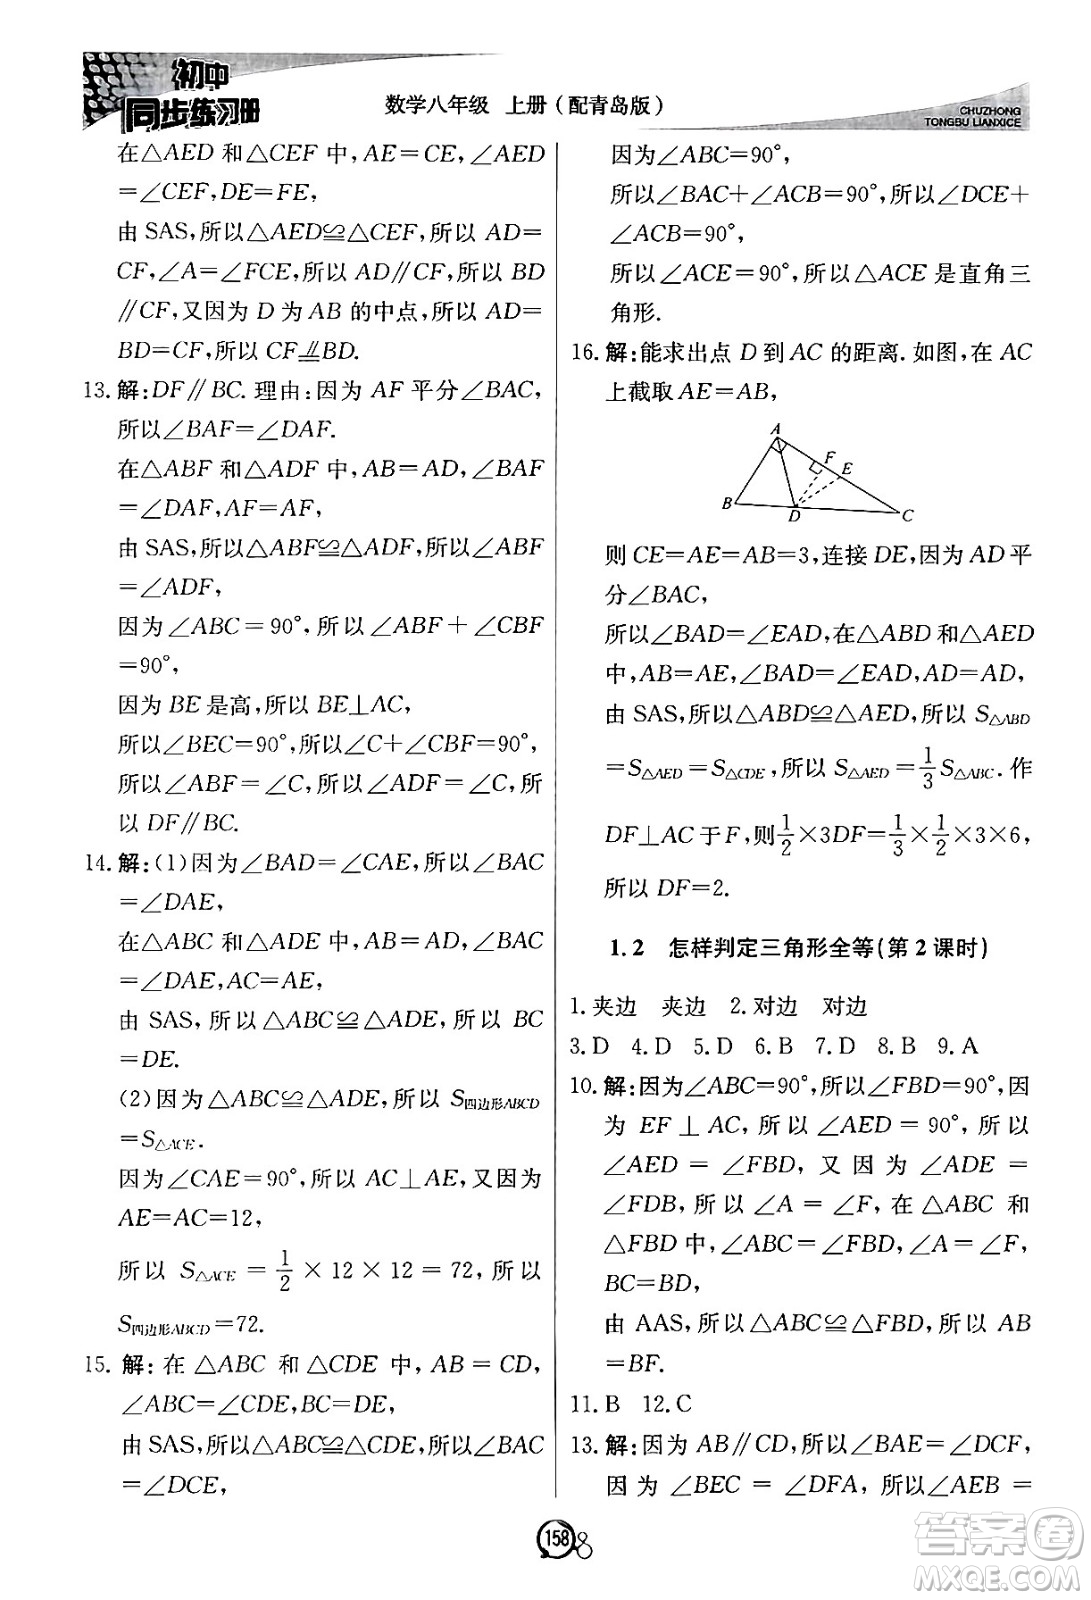 初中
同步练习册
数学八年级 上册(配青岛版)
CHUZHONG
TONGBU LIANXICE
在△AED 和△CEF 中,AE=CE,∠AED
=∠CEF,DE=FE,
由 SAS,所以△AED≌△CEF,所以 AD=
CF,∠A=∠FCE,所以 AD∥CF,所以 BD
∥CF,又因为 D 为 AB 的中点,所以 AD=
BD=CF,所以 CF⫽BD.
13. 解:DF∥BC. 理由:因为 AF 平分∠BAC,
所以∠BAF=∠DAF.
在△ABF 和△ADF 中,AB=AD,∠BAF
=∠DAF,AF=AF,
由 SAS,所以△ABF≌△ADF,所以∠ABF
=∠ADF,
因为∠ABC=90°,所以∠ABF+∠CBF
=90°,
因为 BE 是高,所以 BE⊥AC,
所以∠BEC=90°,所以∠C+∠CBF=90°,
所以∠ABF=∠C,所以∠ADF=∠C,所
以 DF∥BC.
14. 解:(1)因为∠BAD=∠CAE,所以∠BAC
=∠DAE,
在△ABC 和△ADE 中,AB=AD,∠BAC
=∠DAE,AC=AE,
由 SAS,所以△ABC≌△ADE,所以 BC
=DE.
(2)因为△ABC≌△ADE,所以 S四边形ABCD
=S△ACE.
因为∠CAE=90°,所以 AC⊥AE,又因为
AE=AC=12,
所以 S△ACE=1/2×12×12=72,所以
S四边形ABCD=72.
15. 解:在△ABC 和△CDE 中,AB=CD,
∠ABC=∠CDE,BC=DE,
由 SAS,所以△ABC≌△CDE,所以∠BAC
=∠DCE,
因为∠ABC=90°,
所以∠BAC+∠ACB=90°,所以∠DCE+
∠ACB=90°,
所以∠ACE=90°,所以△ACE 是直角三
角形.
16. 解:能求出点 D 到 AC 的距离. 如图,在 AC
上截取 AE=AB,
A
F
E
B
D
C
则 CE=AE=AB=3,连接 DE,因为 AD 平
分∠BAC,
所以∠BAD=∠EAD,在△ABD 和△AED
中,AB=AE,∠BAD=∠EAD,AD=AD,
由 SAS,所以△ABD≌△AED,所以 S△ABD
=S△AED=S△CDE,所以 S△AED=1/3S△ABC. 作
DF⊥AC 于 F,则1/2×3DF=1/3×1/2×3×6,
所以 DF=2.
1.2 怎样判定三角形全等(第 2 课时)
1. 夹边 夹边 2. 对边 对边
3. D 4. D 5. D 6. B 7. D 8. B 9. A
10. 解:因为∠ABC=90°,所以∠FBD=90°,因
为 EF⊥AC,所以∠AED=90°,所以
∠AED=∠FBD,又因为∠ADE=
∠FDB,所以∠A=∠F,在△ABC 和
△FBD 中,∠ABC=∠FBD,∠A=∠F,
BC=BD,
由 AAS,所以△ABC≌△FBD,所以 AB
=BF.
11. B 12. C
13. 解:因为 AB∥CD,所以∠BAE=∠DCF,
因为∠BEC=∠DFA,所以∠AEB=
158
8
答案圈
MXQE.COM